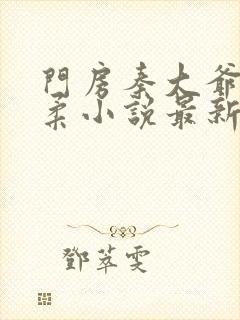 門房秦大爺
柔小說最新
鄧萃雯